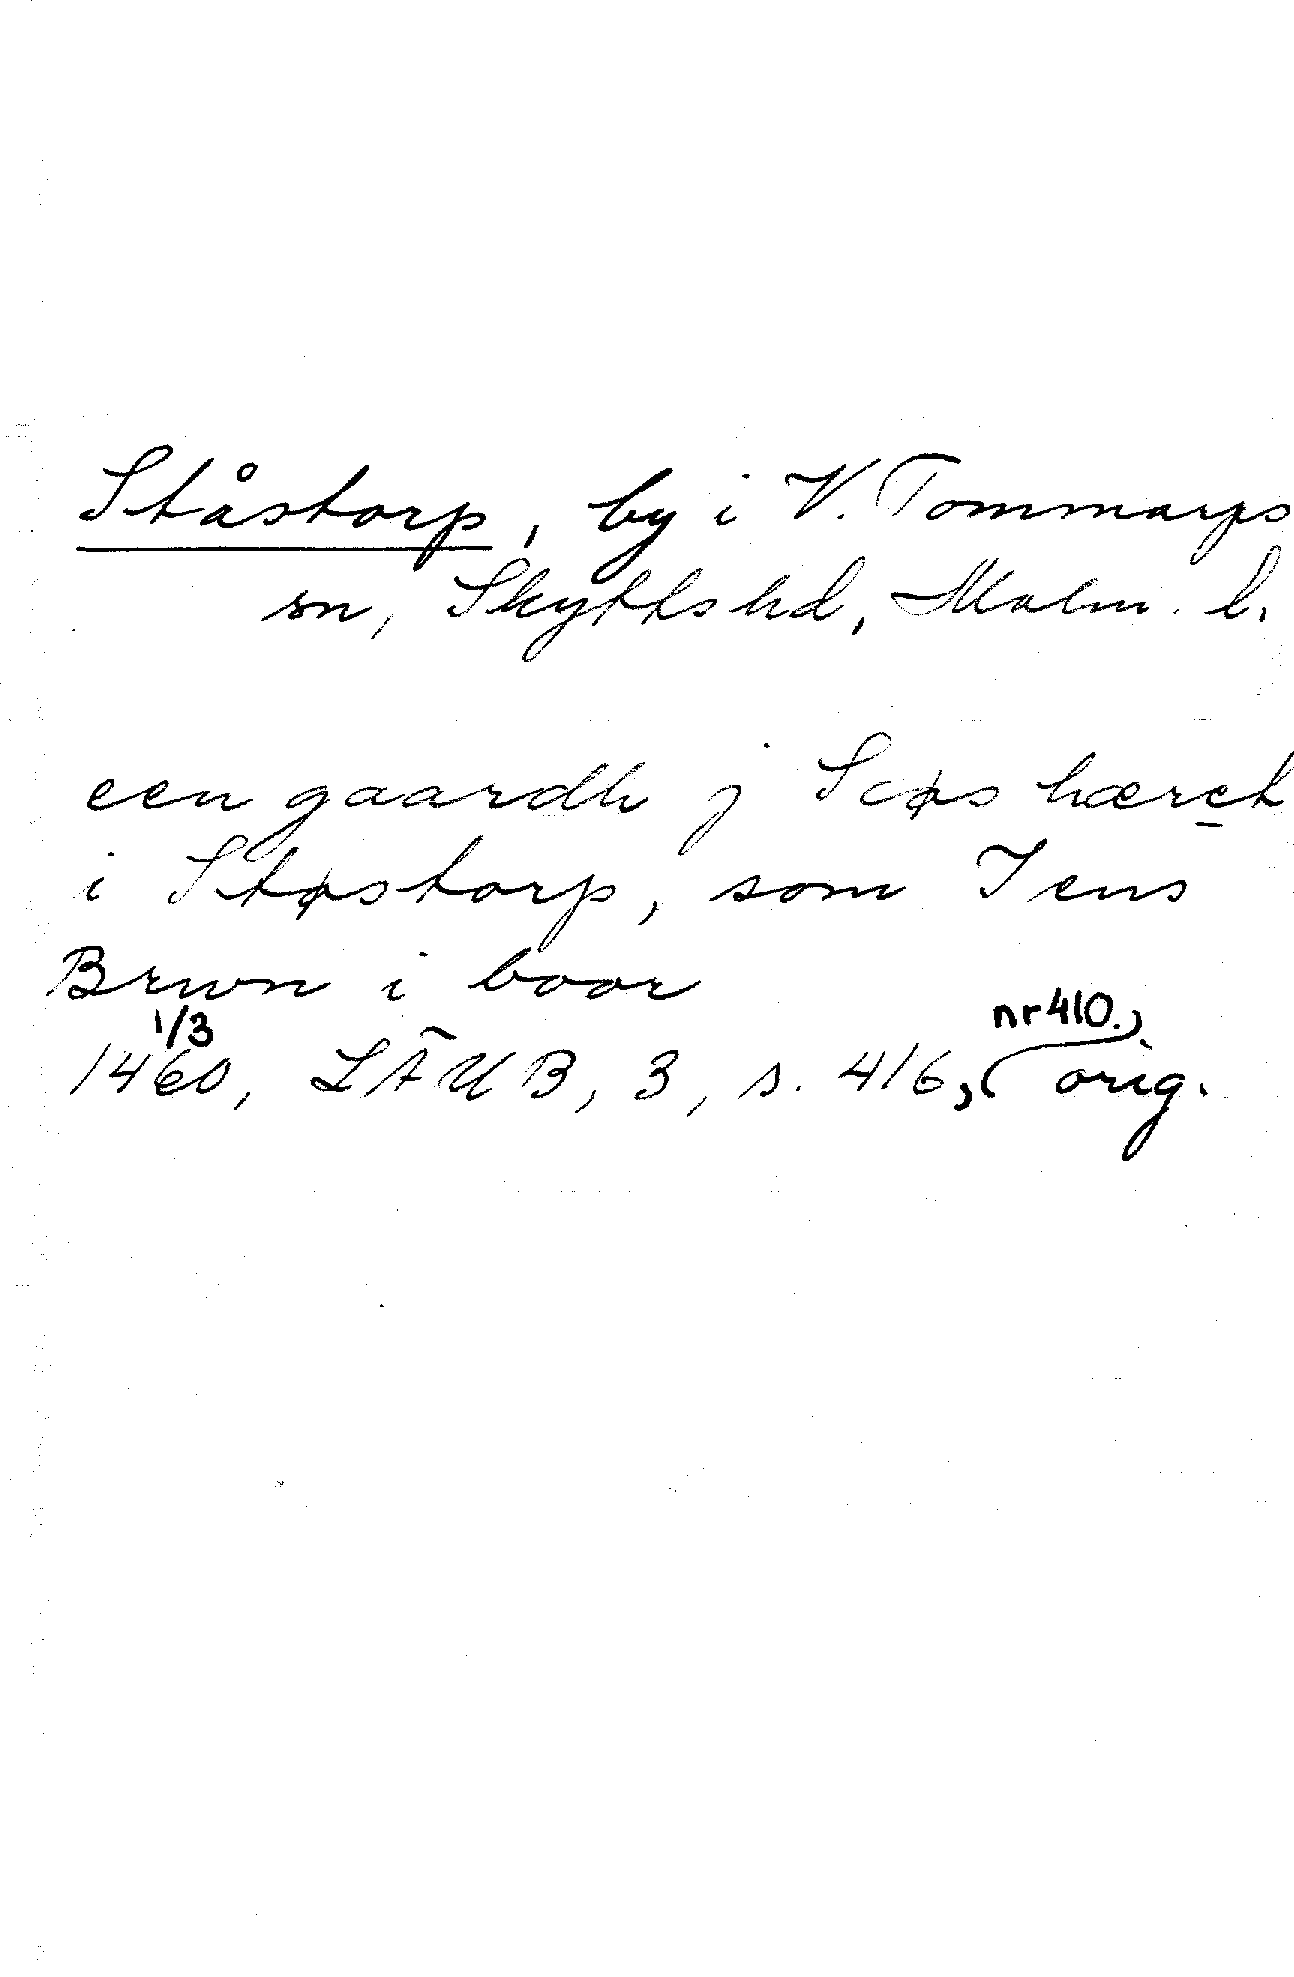 Ståstorp, by i V. Tommarps
sn, Skytts hd, Malm. l.
een gaardh j Scøs hæret
i Støstorp, som Jens
Brwn i boor
1/3 nr 410.,
1460, LÄUB, 3, s. 416, orig.